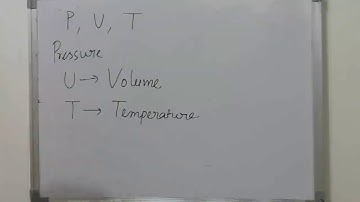 P, V, T
Pressure
V → Volume
T → Temperature